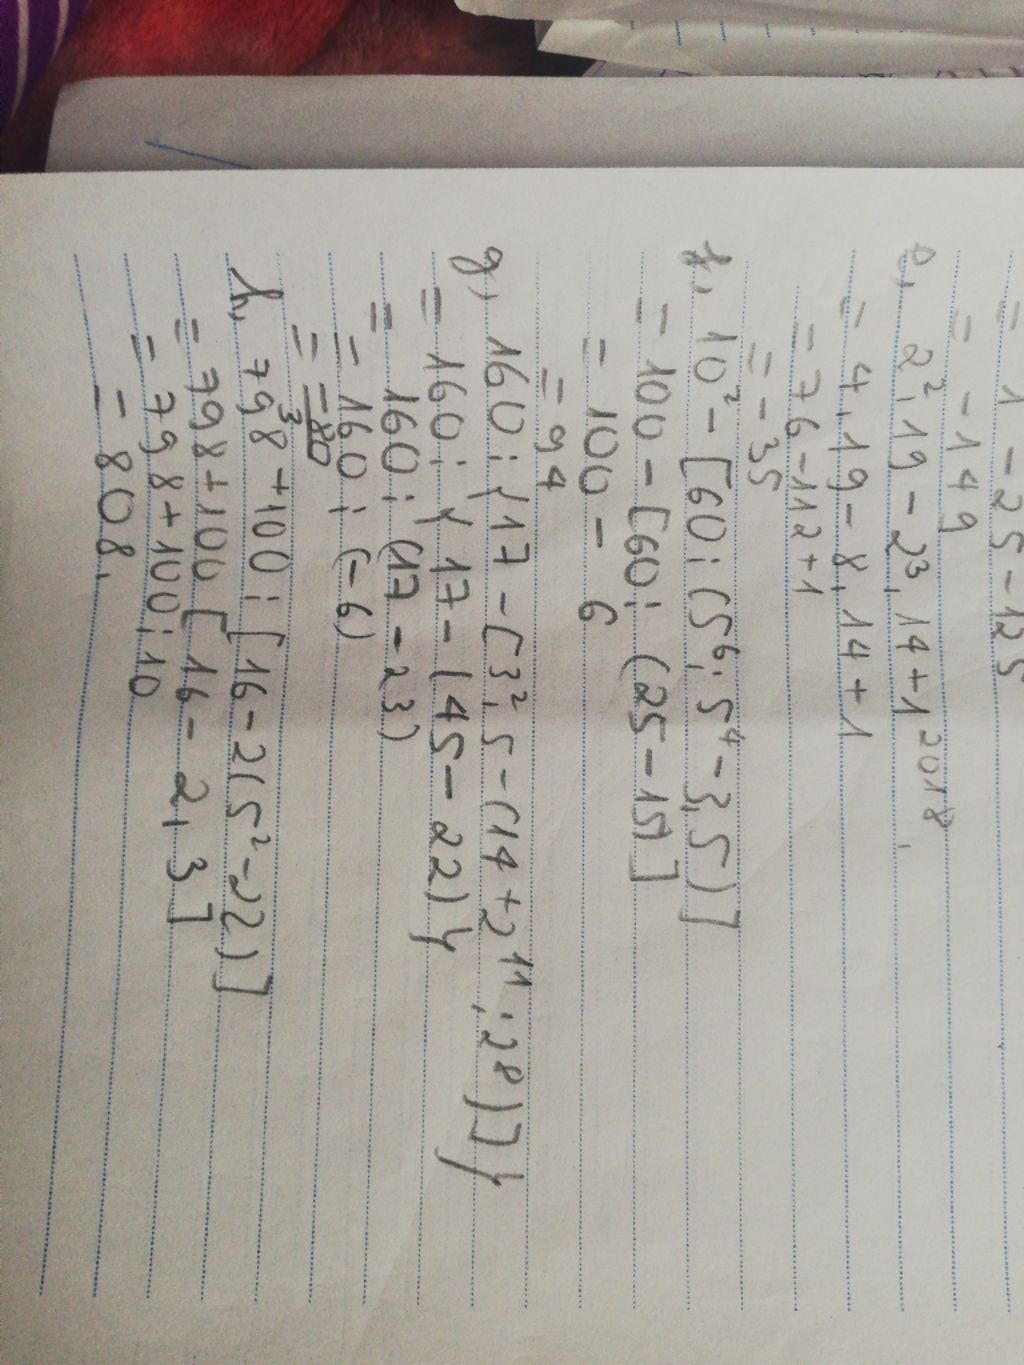 = 1 - 25 - 125
= - 149
e, 2².19 - 2³.14 + 1²⁰¹⁸.
= 4.19 - 8.14 + 1
= 76 - 112 + 1
= - 35
f, 10² - [60 : (5⁶ : 5⁴ - 3.5)]
= 100 - [60 : (25 - 15)]
= 100 - 6
= 94
g, 160 : {17 - [3².5 - (14 + 2¹¹ : 2⁸)]}
= 160 : { 17 - (45 - 22)}
= 160 : (17 - 23)
= 160 : (-6)
= -80/3
h, 798 + 100 : [16 - 2(5² - 22)]
= 798 + 100 [16 - 2.3]
= 798 + 100 : 10
= 808.